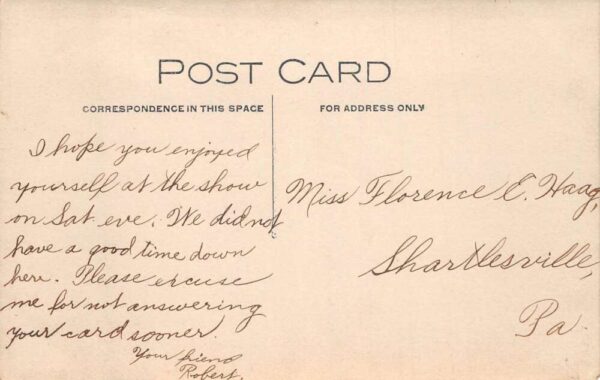 POST CARD
CORRESPONDENCE IN THIS SPACE
FOR ADDRESS ONLY
I hope you enjoyed
yourself at the show
on Sat eve. We did not
have a good time down
here. Please excuse
me for not answering
your card sooner.
Your friend
Robert.
Miss Florence E. Haag,
Shartlesville,
Pa.